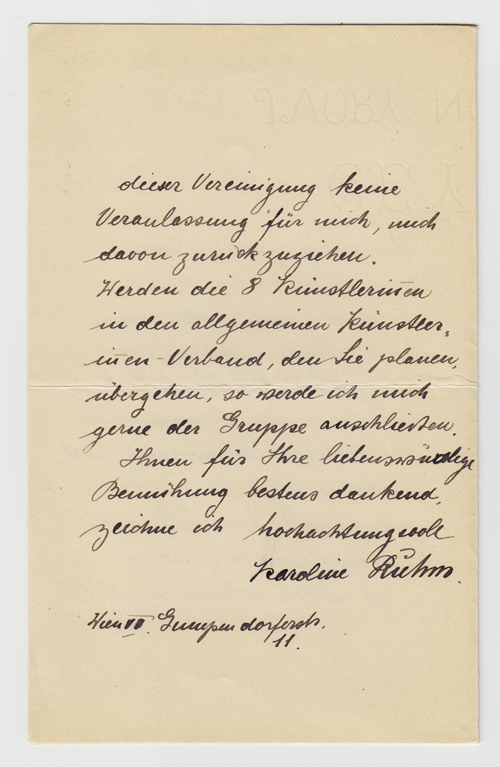 dieser Vereinigung keine
Veranlassung für mich, mich
davon zurückzuziehen.
Werden die 8 Künstlerinnen
in den allgemeinen Künstler-
innen-Verband, den Sie planen,
übergehen, so werde ich mich
gerne der Gruppe anschließen.
Ihnen für Ihre liebenswürdige
Bemühung bestens dankend,
zeichne ich hochachtungsvoll
Karoline
Wien VI. Gumpendorferstr.
11.